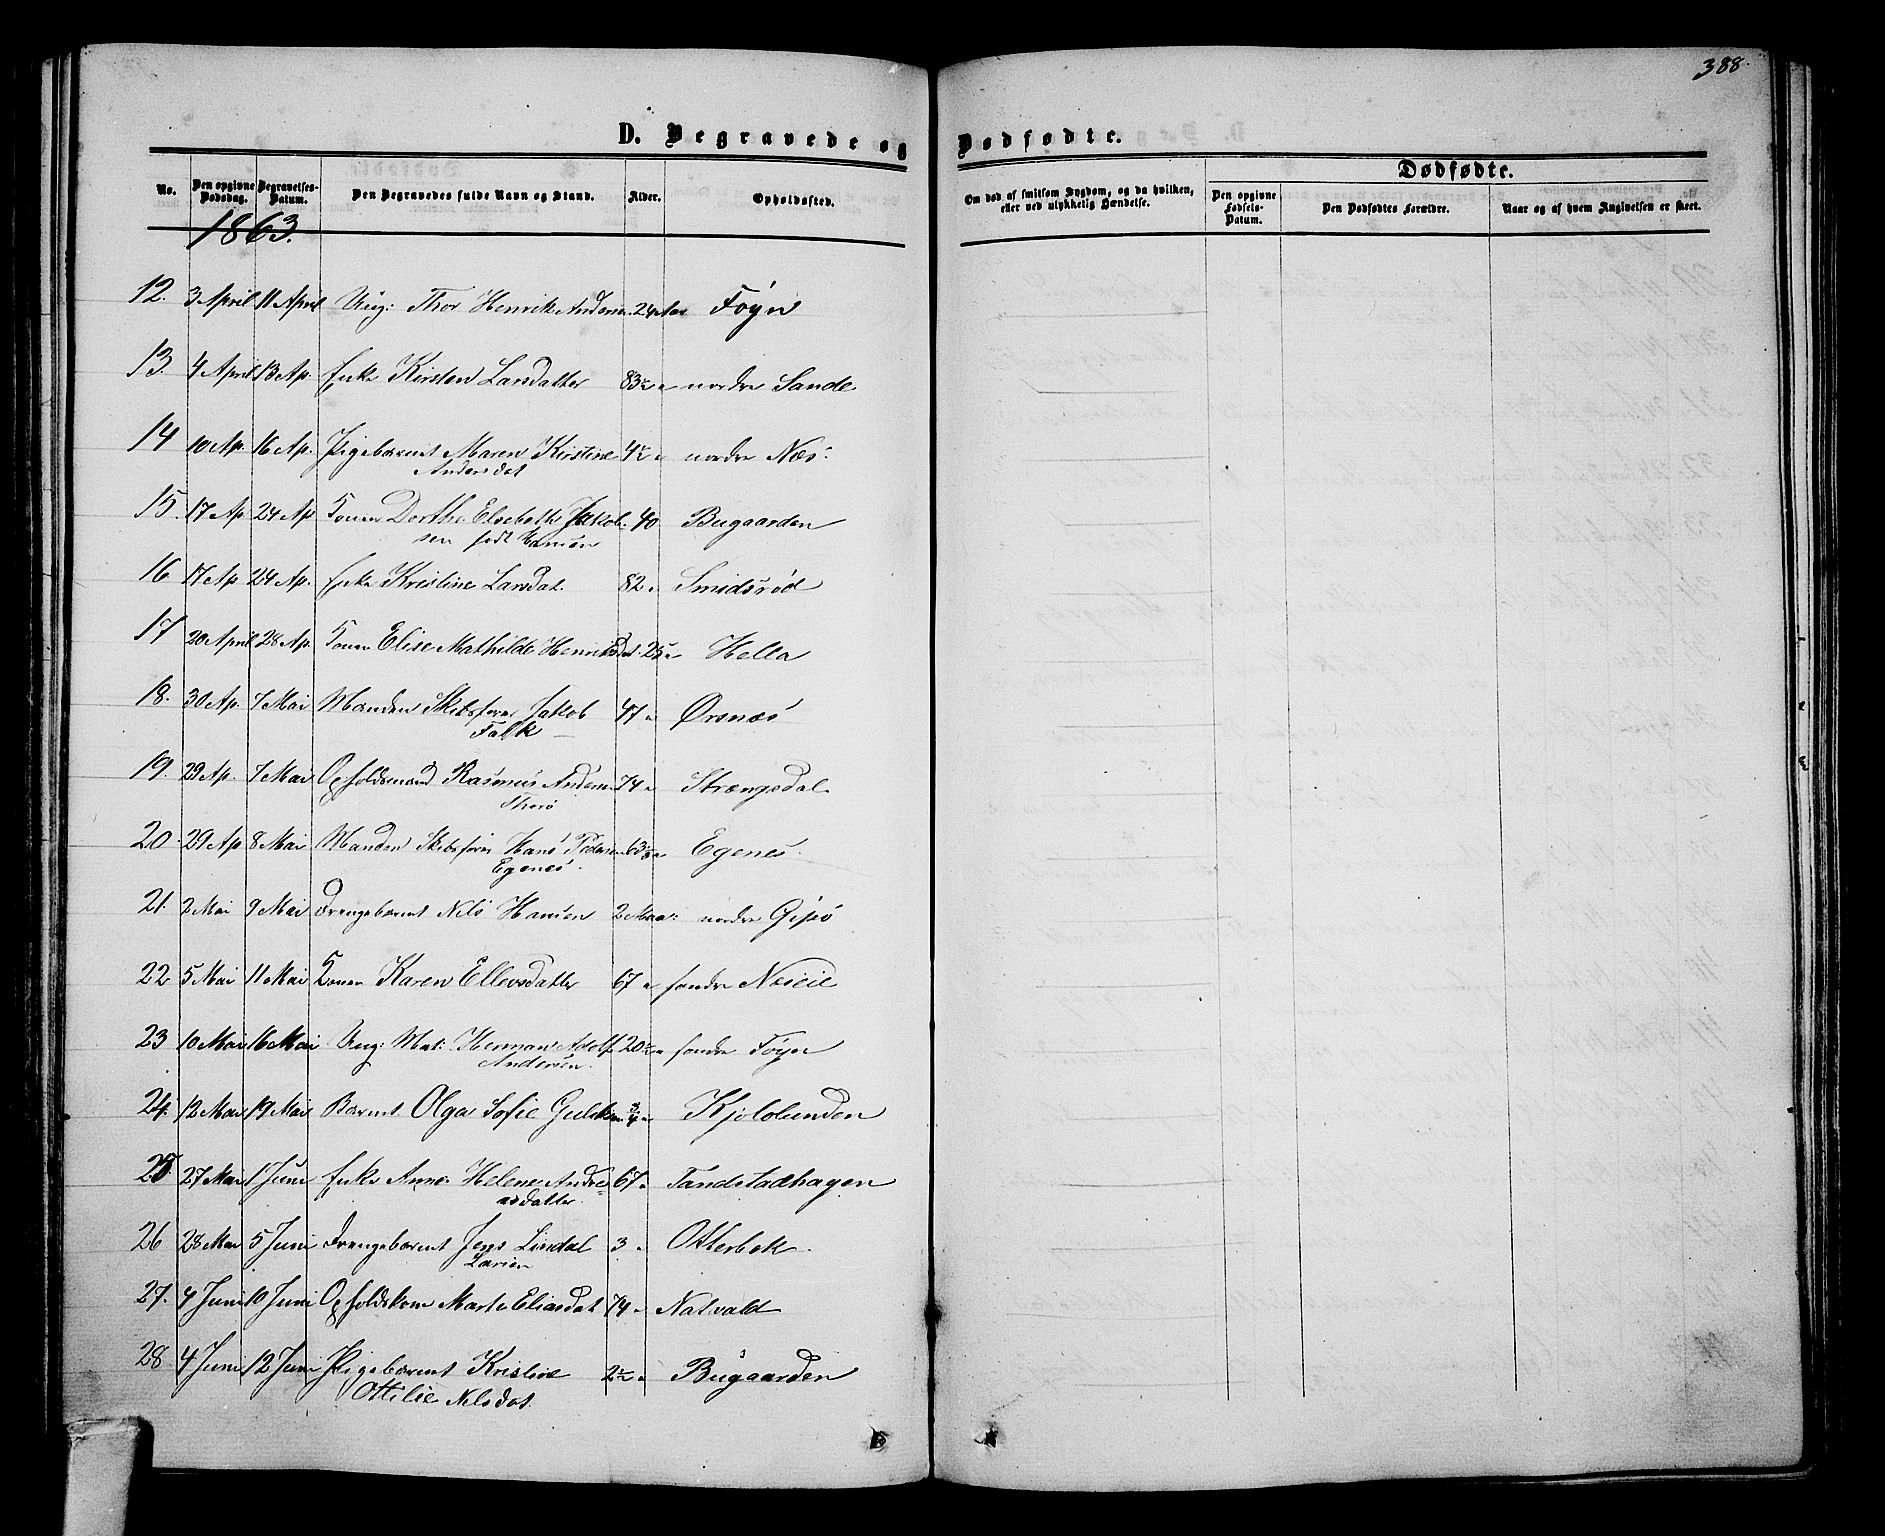 388.
D. Begravede og Dødfødte.
No. Den opgivne Dødsdag. Begravelses-Datum. Den Begravedes fulde Navn og Stand. Alder. Opholdssted. Om død af smitsom Sygdom, og da hvilken, eller ved ulykkelig Hændelse. Dødfødte. Den opgivne Fødsels-Datum. Den Dødfødtes Forældre. Naar og af hvem Angivelsen er skeet.
1863.
12. 3 April 11 April Ung: Thor Henrik Andersen 24 Aar Foÿn
13. 4 April 13 Ap. Enke Kirsten Larsdatter 83½ " nordre Sande
14 10 Ap. 16 Ap. Pigebarnet Maren Kirstine 4½ " nordre Næs
Andersdat
15. 17 Ap 24 Ap Konen Dorthe Elsebeth Jakob- 40 Bugaarden
sen født Hansen
16 17 Ap 24 Ap. Enke Kristine Larsdat. 82 " Smidsrød
17 20 April 28 Ap. Konen Elise Mathilde Henriksdat. 25 " Hella
18. 30 Ap. 7 Mai Manden Skibsfører Jakob 47 " Ørsnæs
Falk
19. 29 Ap. 7 Mai Opholdsmand Rasmus Andersen 74 " Strængsdal
20. 29 Ap 8 Mai Manden Skibsfører Hans Pedersen 63 " Egenes
Egenes.
21. 2 Mai 9 Mai Drengebarnet Nils Hansen 2 Maa: nordre Gipø
22 5 Mai 11 Mai Konen Karen Ellevsdatter 67 " søndre Næseie
23 10 Mai 16 Mai Ung: Mat: Herman Adolf 20½ " søndre Foÿn
Andersen.
24. 12 Mai 19 Mai Barnet Olga Sofie Gulliksen ¾ " Kjøllunden
25. 27 Mai 1 Juni Enke Anne Helene Andre= 67 " Tandstadhagen
asdatter
26 28 Mai 5 Juni Drengebarnet Jens Lindal 3 " Otterbek
Larsen
27. 4 Juni 10 Juni Opholdskone Marte Eliasdat 74 " Natvald
28 4 Juni 12 Juni Pigebarnet Kristine 2½ " Bugaarden
Ottilie Nilsdat.